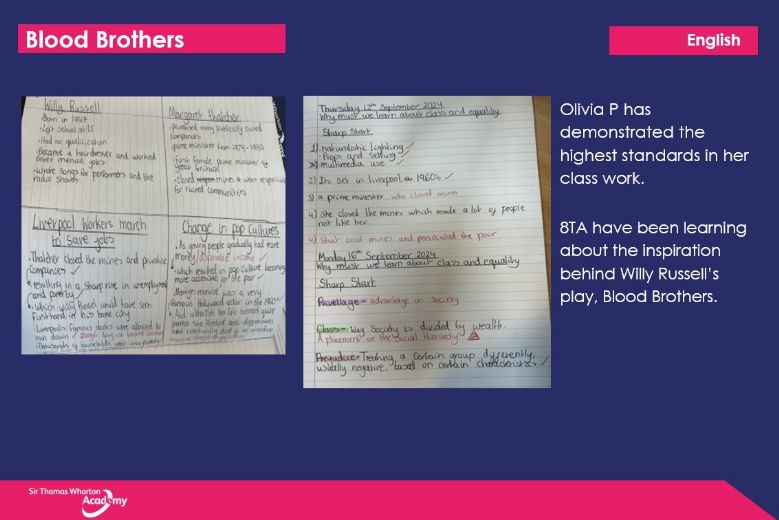 Blood Brothers
English
Willy Russell
· Born in 1947
· Left school at 15
· Had no qualification
· Became a hairdresser and worked
other menial jobs
· Wrote songs for performers and the
radio shows.
Margaret Thatcher
· privatised many publically owned
companies
· prime minister from 1979 - 1990
· first female prime minister of
great britain
· Closed mines & was responsible
for ruined communities
Liverpool Workers march
to save jobs
· Thatcher closed the mines and privatise
companies
resulting in a sharp rise in unemployment
and poverty
which Russell would have seen
firsthand in his home city
Liverpools famous docks were allowed to
run down
Thousands of households were
Change in pop cultures
· As young people gradually had more
money / disposable income
· which resulted in pop culture becoming
more accessible for the poor
Marilyn monroe was a very
famous Hollywood actor in the 1950s
· And although her life seemed quite
perfect she
and eventually died of an
Thursday 12th September 2024
Why must we learn about class and equality
Sharp Start
1) naturalistic lighting
· Props and setting
multimedia use
2) Its set in liverpool, 1960's
3) a prime minester who closed mines
4) She closed the mines which made a lot of people
not like her.
4) Shut coal mines and persecuted the poor
Monday 16th September 2024
Why must we learn about class and equality
Sharp Start
Privellage - advantage in society
Class - Way Society is divided by wealth.
A placement on the Social Hierarchy
Prejudice - Treating a certain group differently,
usually negative, based on certain characteristics
Olivia P has
demonstrated the
highest standards in her
class work.
8TA have been learning
about the inspiration
behind Willy Russell's
play, Blood Brothers.
Sir Thomas Wharton
Academy